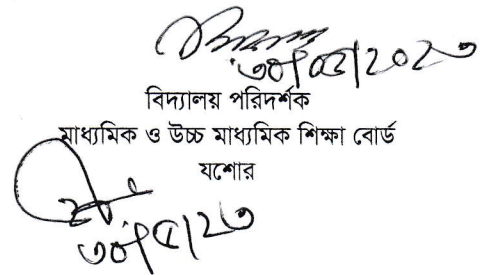 ৩০/০৫/২০২৩
বিদ্যালয় পরিদর্শক
মাধ্যমিক ও উচ্চ মাধ্যমিক শিক্ষা বোর্ড
যশোর
৩০/৫/২৩